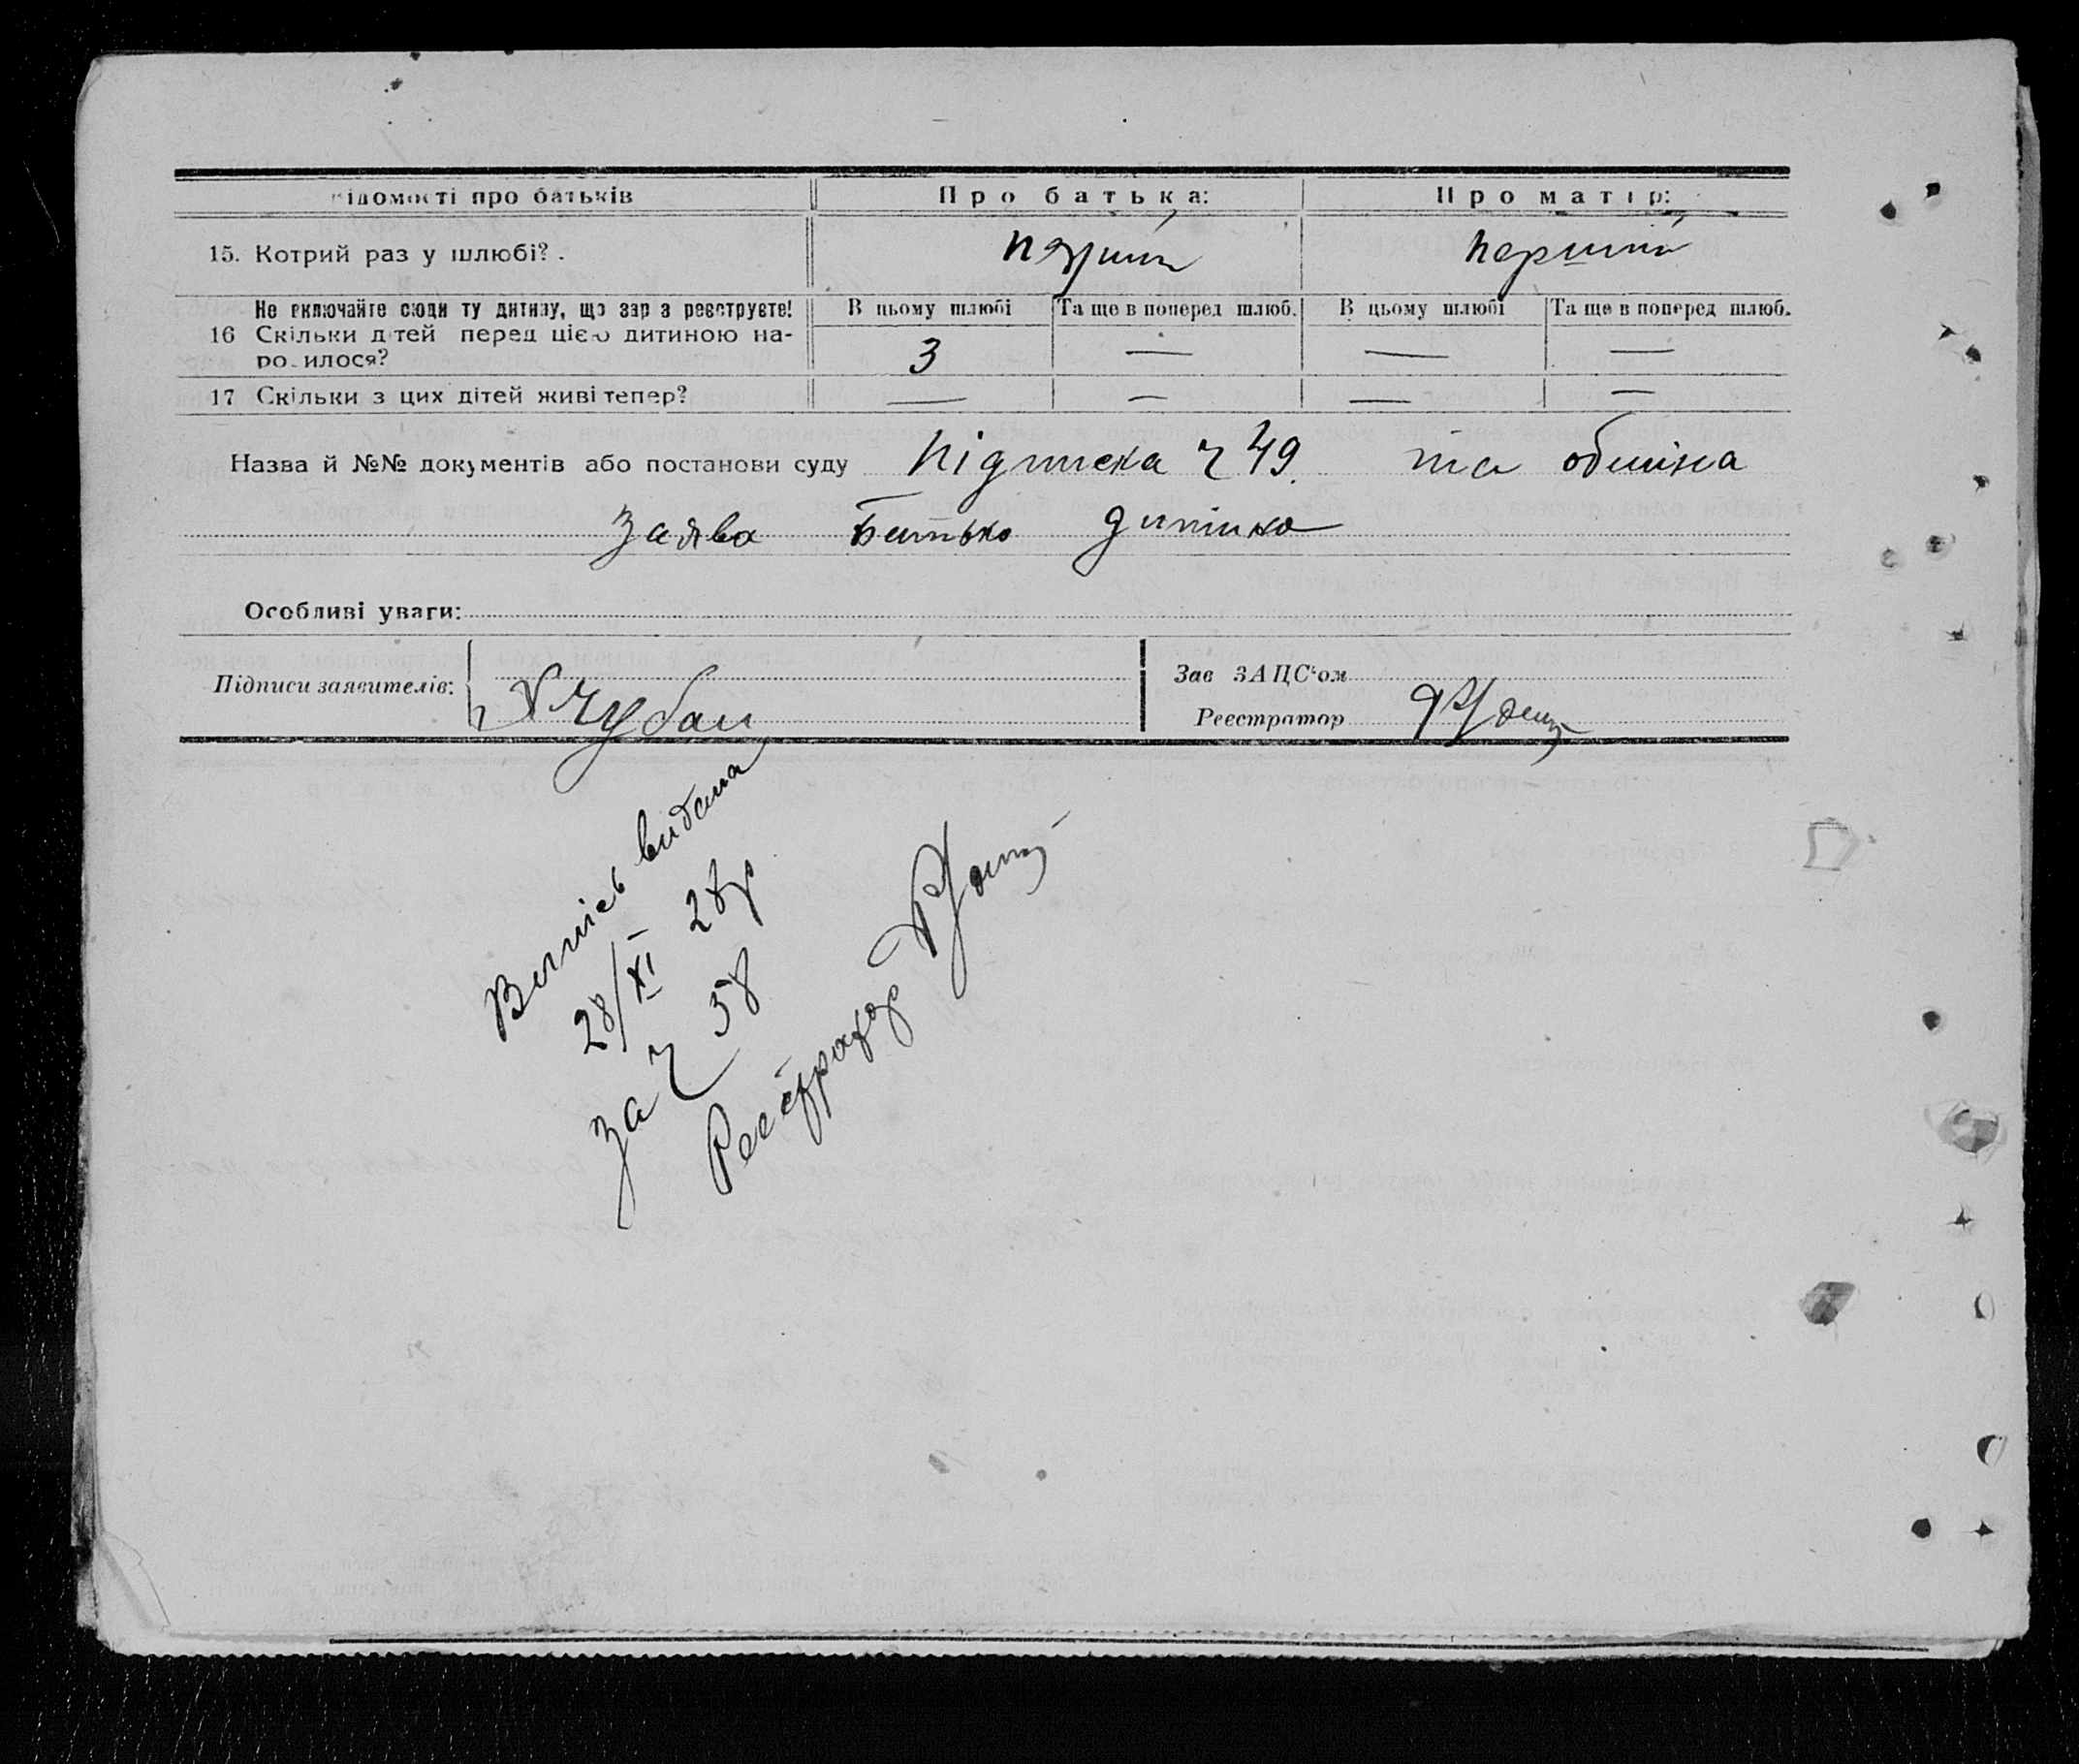 ідомості про батьків
Про батька:
Про матір:
15. Котрий раз у шлюбі?.
перший
перший
Не включайте сюди ту дитину, що зараз реєструєте!
В цьому шлюбі
Та ще в поперед шлюб.
В цьому шлюбі
Та ще в поперед шлюб.
16 Скільки дітей перед цією дитиною на-
ро.илося?
3 — — —
17 Скільки з цих дітей живі тепер?
— — — —
Назва й №№ документів або постанови суду Підписка ч 49. та обміна
Заява Батько
Особливі уваги:
Підписи заявителів:
Чубан
Зав ЗАЦС'ом
Реєстратор
Випись видана
28/XI 28р
за ч 58
Реєстратор